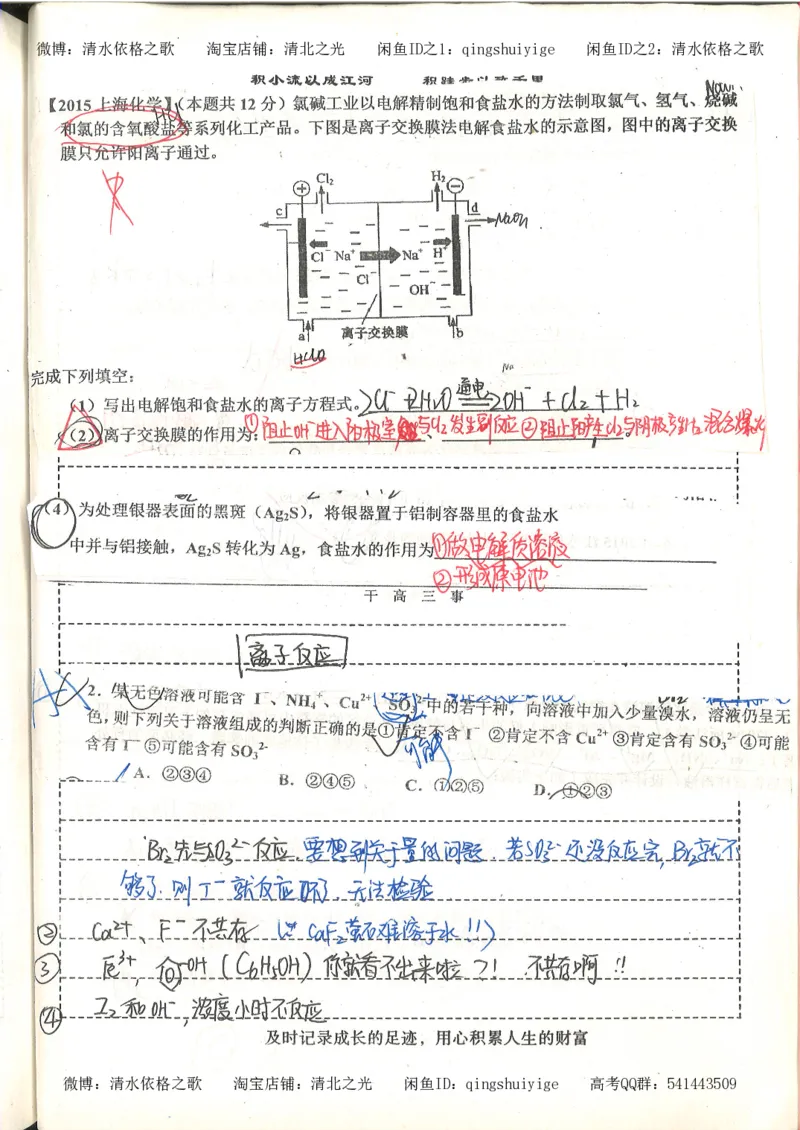 微博：清水依格之歌 淘宝店铺：清北之光 闲鱼ID之1：qingshuiyige 闲鱼ID之2：清水依格之歌
积小流以成江河
【2015 上海化学】（本题共 12 分）氯碱工业以电解精制饱和食盐水的方法制取氯气、氢气、烧碱
和氯的含氧酸盐等系列化工产品。下图是离子交换膜法电解食盐水的示意图，图中的离子交换
膜只允许阳离子通过。
Cl₂ H₂
c d NaOH
Cl⁻ Na⁺ Na⁺ H⁺
Cl⁻ OH⁻
a 离子交换膜 b
完成下列填空：
（1）写出电解饱和食盐水的离子方程式。2Cl⁻+2H₂O 通电 2OH⁻+Cl₂+H₂
（2）离子交换膜的作用为：①阻止OH⁻进入阳极室与Cl₂发生副反应②阻止阳产生Cl₂与阴极产生H₂混合爆炸
（4）为处理银器表面的黑斑（Ag₂S），将银器置于铝制容器里的食盐水
中并与铝接触，Ag₂S 转化为 Ag，食盐水的作用为①做电解质溶液
②形成原电池
于 高 三 事
离子反应
2．某无色溶液可能含 I⁻、NH₄⁺、Cu²⁺、SO₃²⁻中的若干种，向溶液中加入少量溴水，溶液仍呈无
色，则下列关于溶液组成的判断正确的是①肯定不含 I⁻ ②肯定不含 Cu²⁺ ③肯定含有 SO₃²⁻ ④可能
含有 I⁻ ⑤可能含有 SO₃²⁻
A．②③④ B．②④⑤ C．①②⑤ D．①②③
Br₂先与SO₃²⁻反应，要想到关于量的问题，若SO₃²⁻还没反应完，Br₂就不
够了，则I⁻就反应不了，无法检验
② Ca²⁺、F⁻不共存（∵CaF₂萤石难溶于水!!）
③ Fe³⁺，OH（C₆H₅OH）你就看不出来啦?! 不共存啊!!
④ I₂和OH⁻，浓度小时不反应
及时记录成长的足迹，用心积累人生的财富
微博：清水依格之歌 淘宝店铺：清北之光 闲鱼ID：qingshuiyige 高考QQ群：541443509